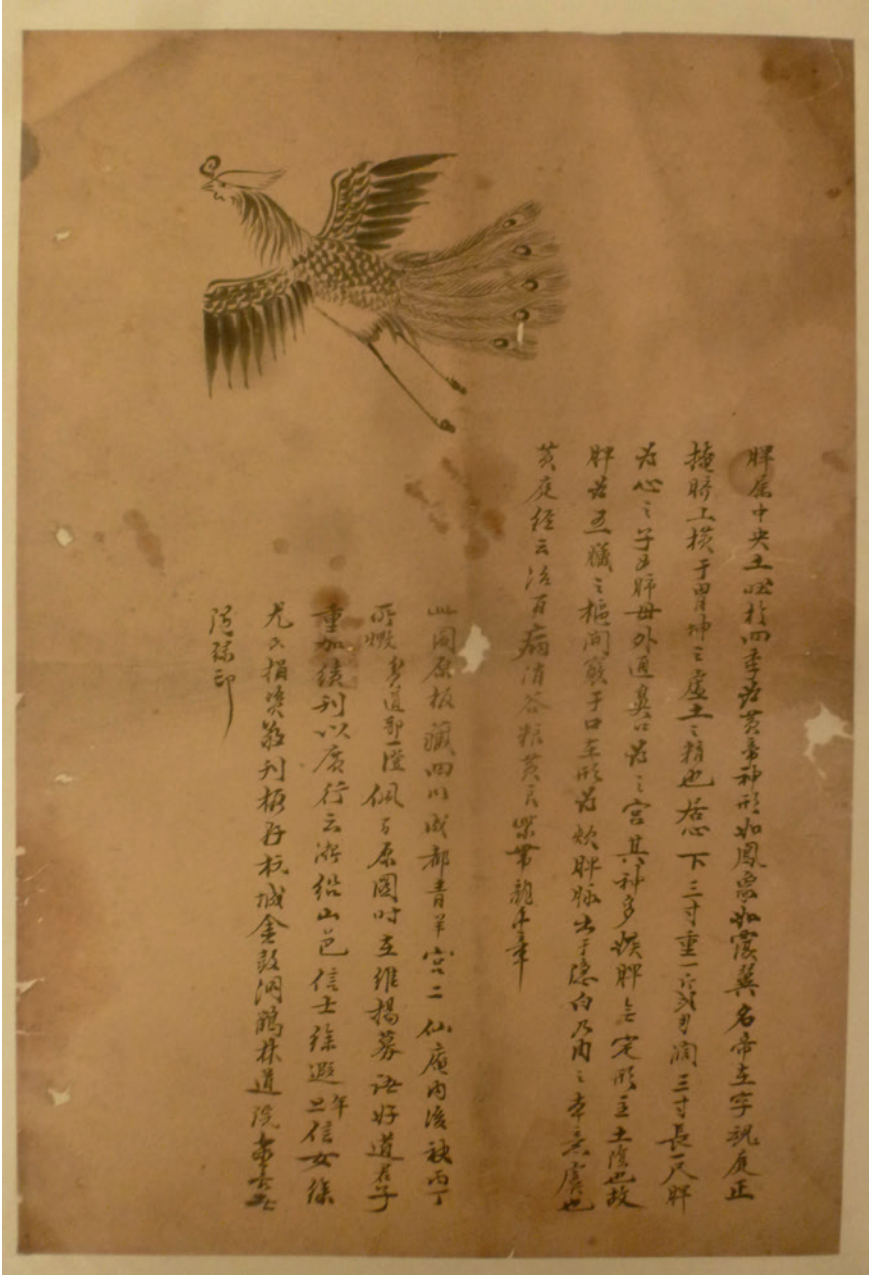 脾属中央土旺於四季為黃帝神形如鳳象如覆名常在字魂庭正
掩臍上橫于胃坤之處土之精也居心下三寸重一斤二两闊三寸長一尺脾
為心之子為肺母外通鼻口為之宮其神多嫉脾無定形主土陰也故
脾為五臟之樞開竅于口在形為頰脾脉出于隱白乃肉之本意處也
黃庭經云治百病消谷粮黃衣紫帶龍虎章
此図原板藏四川成都青羊宮二仙庵內後被丙丁
所燬道鄒一澄佩原図时在維揚募諸好道君子
重加鐫刊以廣行云浙紹山邑信士徐遐年信女徐
尤氏捐資敬刊板存杭城金鼓洞鶴林道院
隨緣印